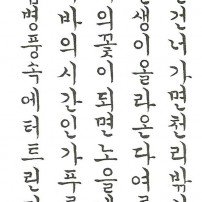 건너가면천리밖
생이올라온다여
의꽃이되면노을
바의시간인가푸
병풍속에터트린